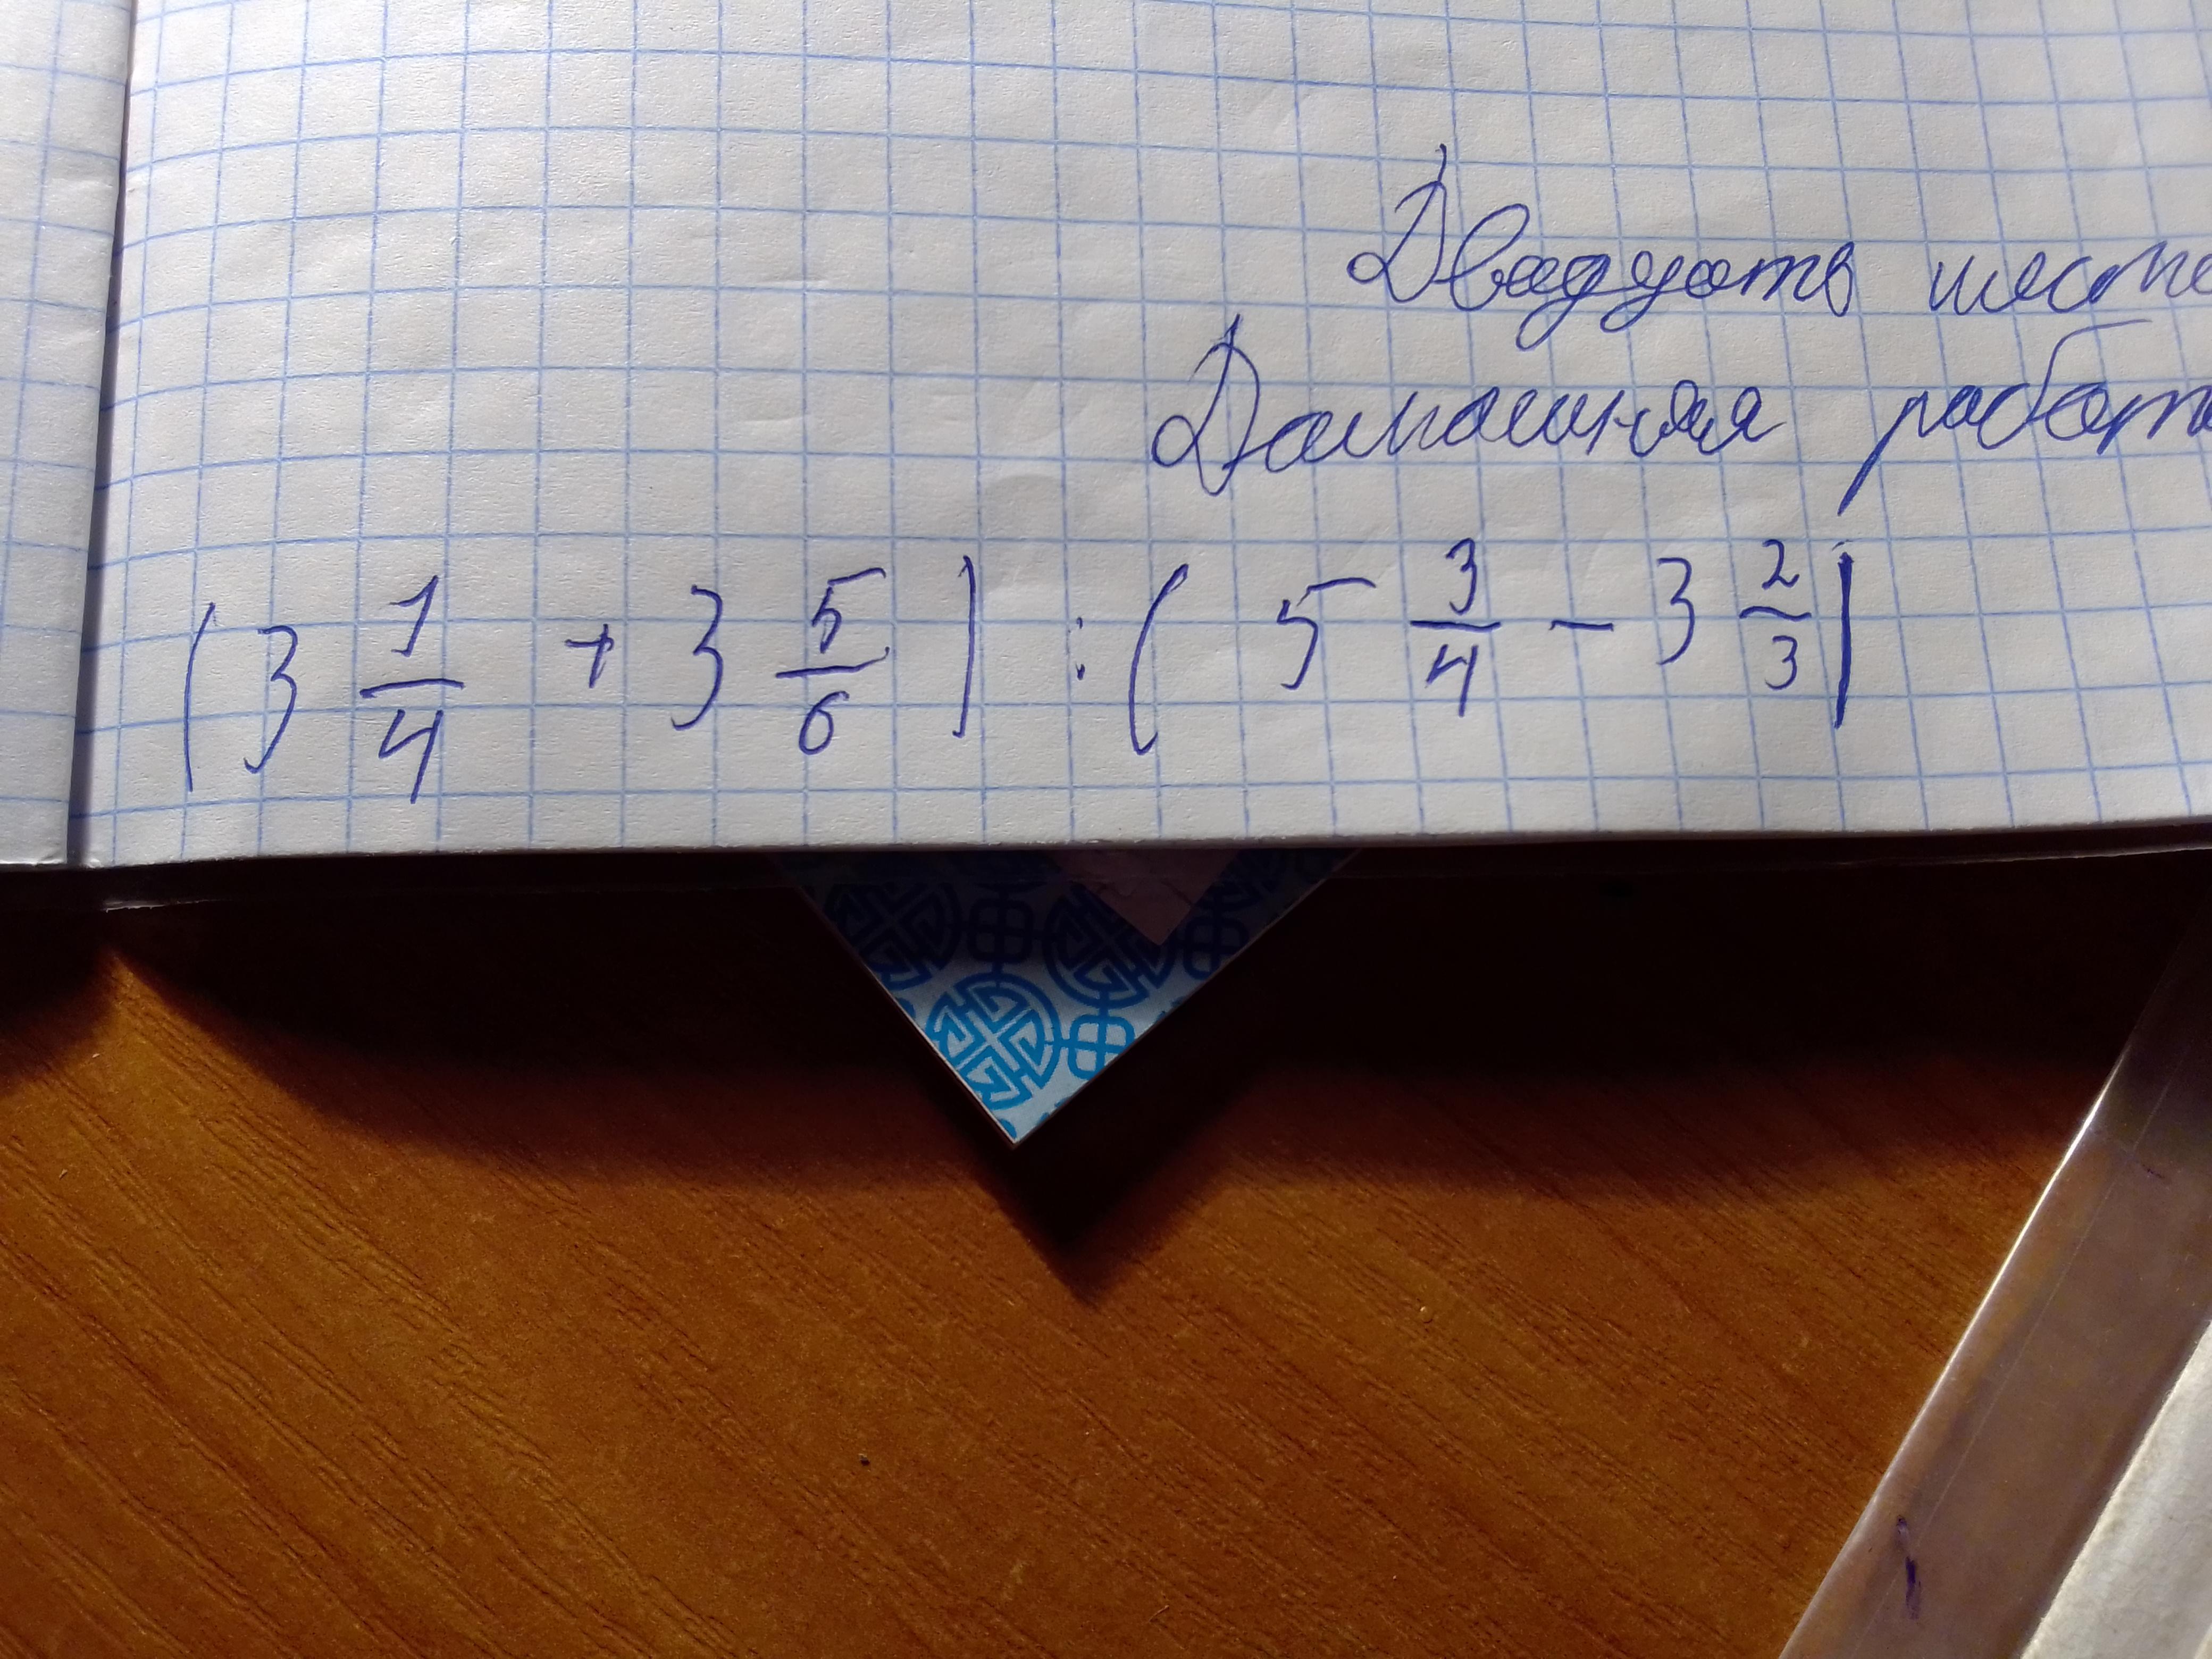 Двадцать шесто
Домашняя работа
(3 1/4 + 3 5/6) : (5 3/4 - 3 2/3)